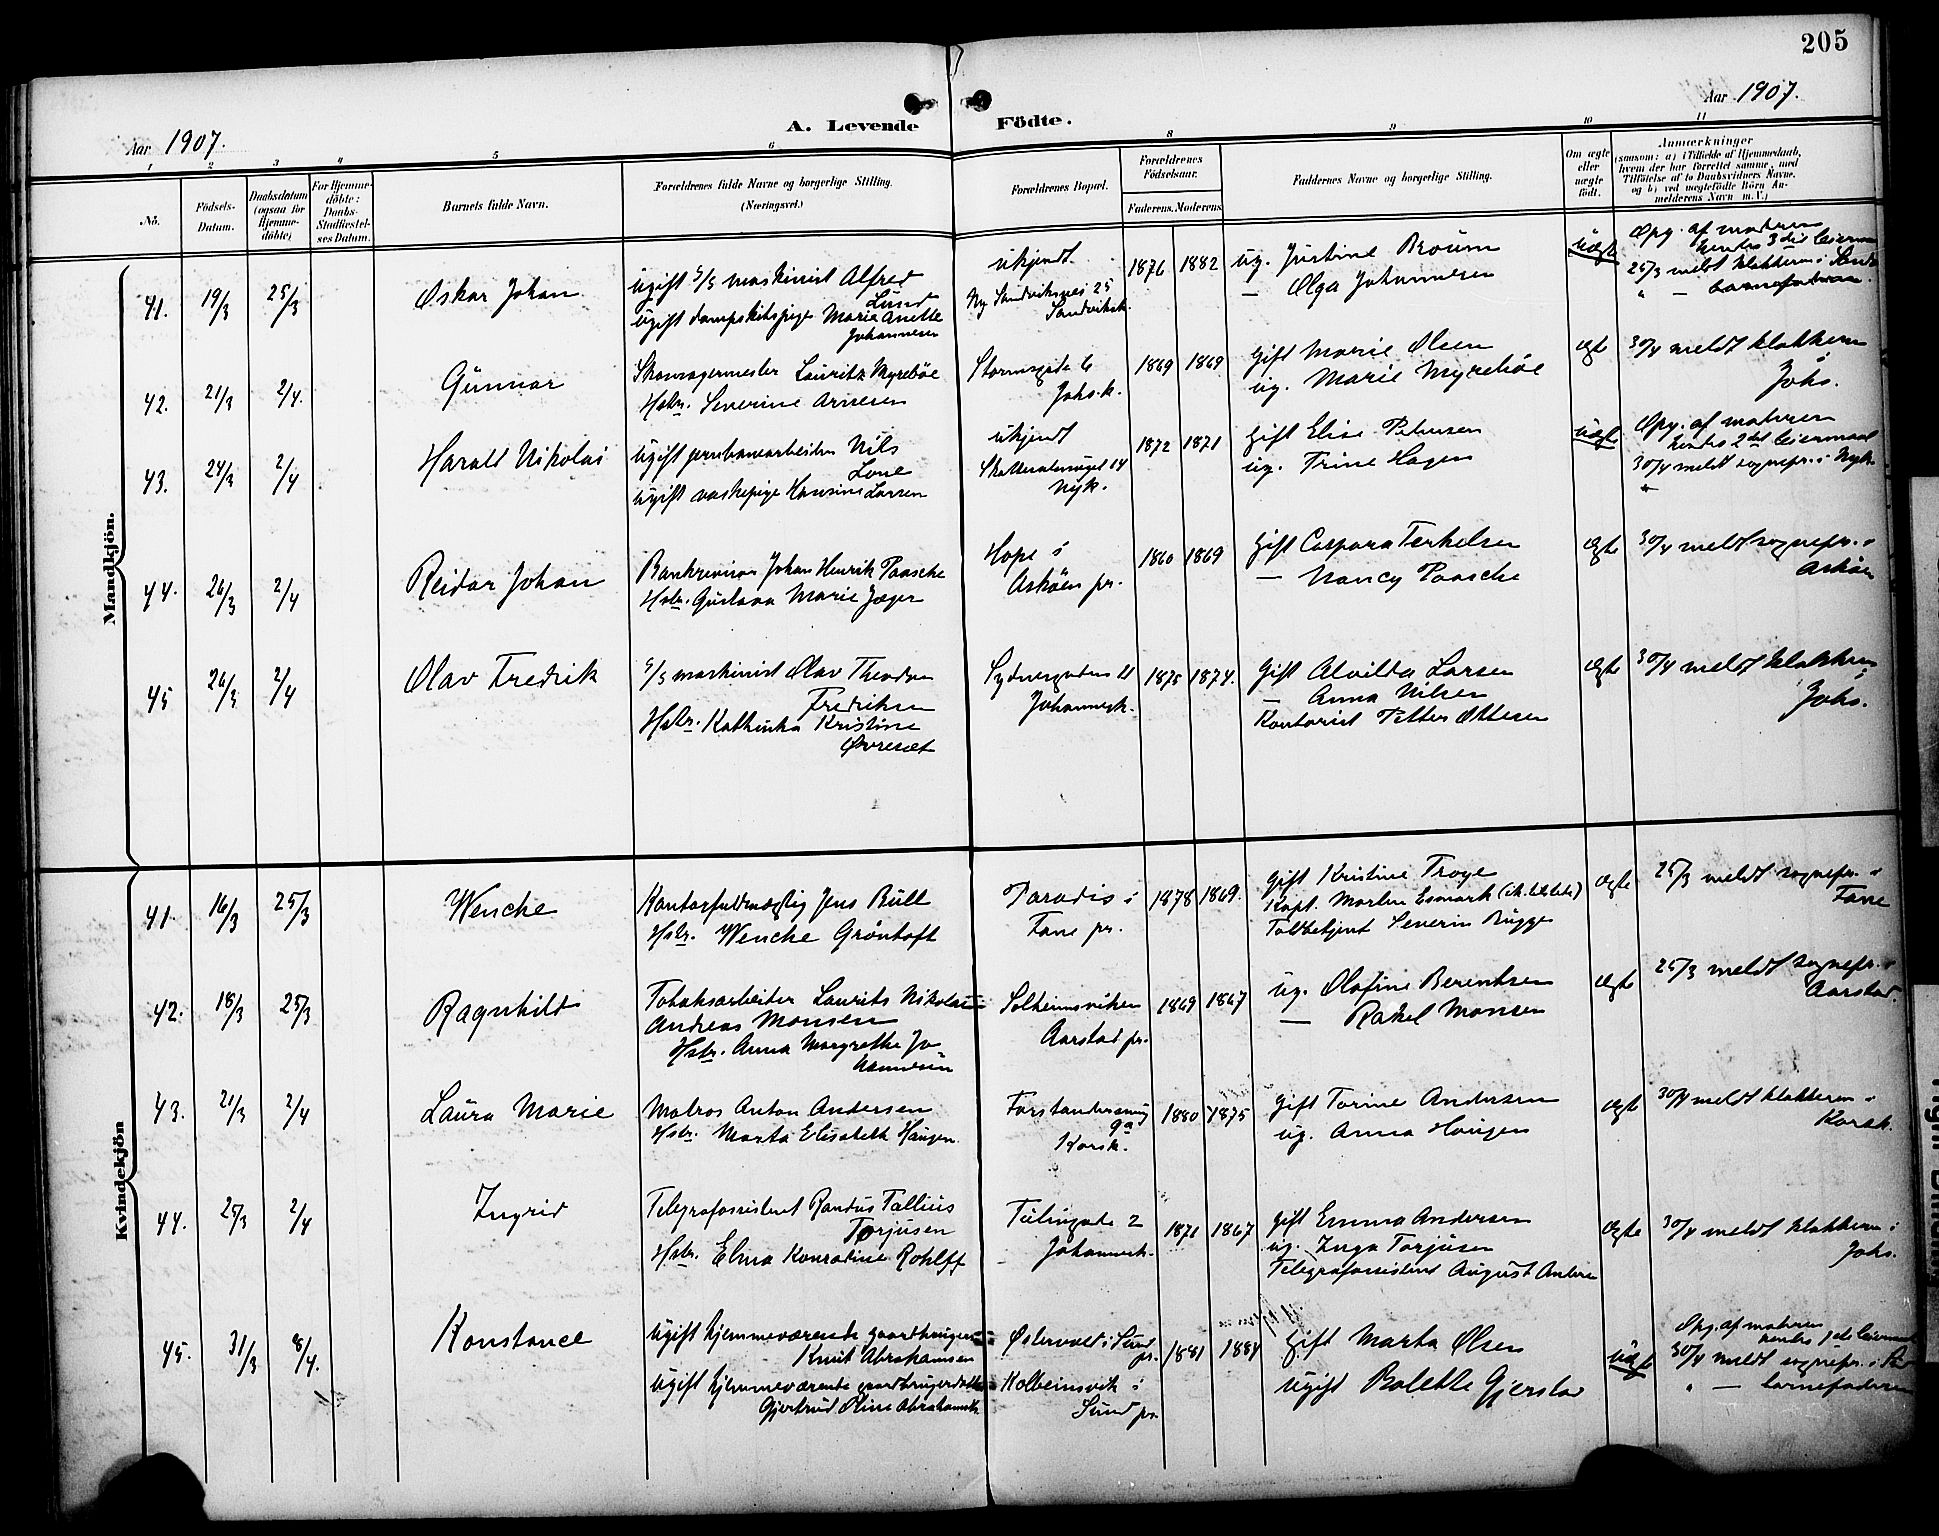 205
Aar 1907.
A. Levende Födte.
Aar 1907.
1 2 3 4 5 6 8 9 10 11
No.
Födsels-Datum.
Daabsdatum (ogsaa for Hjemmedöbte)
For Hjemmedöbte: Daabs-Stadfæstelses Datum.
Barnets fulde Navn.
Forældrenes fulde Navne og borgerlige Stilling.
(Næringsvei.)
Forældrenes Bopæl.
Forældrenes Födselsaar.
Faderens. Moderens.
Faddernes Navne og borgerlige Stilling.
Om ægte eller uægte födt.
Anmærkninger
(saasom: a) i Tilfælde af Hjemmedaab, hvem der har forrettet samme, med Tilföielse af to Daabsvidners Navne, og b) ved uægtefödte Börn Anmelderens Navn m. V.)
Mandkjön.
41. 19/3 25/3 Oskar Johan
ugift S/S maskinist Alfred
Lund
ugift dampskibspige Marie Anette
Johannesen
ukjendt.
Ny Sandviksvei 25
Sandviksk.
1876 1882
ug. Justine Broum
— Olga Johannesen
uægte
Opg. af moderen
hendes 3die leierm
25/3 meldt klokkeren i Sandv
" — barnefaderen.
42. 21/3 2/4. Gunnar
Skomagermester Lauritz Myrebøe
Hstr. Severine Arnesen
Stormsgade 6
Johs.k.
1869 1869
Gift Marie Olsen
ug. Marie Myrebøe
ægte
30/4 meldt klokkeren
Johs.
43. 24/3 2/4 Harald Nikolai
ugift jernbanearbeider Nils
Lone
ugift vaskepige Hansine Larsen
ukjendt
14
Nyk.
1872 1871
Gift Elise Petersen
ug. Trine Hagen
uægte
Opg. af moderen
hendes 2det leiermaal
30/4 meldt sognepr. i Nyk.
44. 26/3 2/4 Reidar Johan
Bankrevisor Johan Henrik Paasche
Hstr. Gustava Marie Jæger
Hope i
Askøen pr.
1860 1869
Gift Caspara Terkelsen
— Nancy Paasche
ægte
30/4 meldt sognepr. i
Askøen
45 26/3 2/4 Olav Fredrik
S/S maskinist Olav Theodor
Fredriksen
Hstr. Kathinka Kristine
Øvreset
Sydnesgaden 11
Johannesk.
1875 1874.
Gift Alvilda Larsen
— Anna Nilsen
Kontorist Petter Ottesen
ægte
30/4 meldt klokkeren
Johs.
Kvindekjön
41. 16/3 25/3 Wencke
Kontorfuldmægtig Jens Bull
Hstr. Wencke Gröntoft
Paradis i
Fane pr.
1878 1869.
Gift Kristine Troye
Kapt. Morten Esmark
Toldbetjent Severin Brügge
ægte
25/3 meldt sognepr. i
Fane
42. 18/3 25/3 Ragnhild
Tobaksarbeider Laurits Nikolai
Andreas Monsen
Hstr. Anna Margrethe Jo
hannesen
Solheimsviken
Aarstad pr.
1869 1867
ug. Olafine Berentsen
— Rakel Monsen
ægte
25/3 meldt sognepr. i
Aarstad.
43. 21/3 2/4 Laura Marie
Matros Anton Andersen
Hstr. Marta Elisabeth Haugen.
9a
Korsk.
1880 1875
Gift Torine Andersen
ug. Anna Haugen
ægte
30/4 meldt klokkeren i
Korsk.
44. 25/3 2/4 Ingrid
Telegrafassistent Randus Tallius
Torjusen
Hstr. Elma Konradine Rohlff
2
Johannesk.
1871 1867
Gift Emma Andersen
ug. Inga Torjusen
Telegrafassistent August Anders
ægte
30/4 meldt klokkeren i
Johs.
45. 31/3 8/4. Konstance
ugift hjemmeværende gaardbruger
Knut Abrahamsen
ugift hjemmeværende gaardbrugerdatter
Gjertrud Oline Abrahams
i Sund
pr.
Kolbeinsvik i
Sund pr.
1881 1884
Gift Marta Olsen
Ugift Bolette Gjerstad
uægte
Opg. af moderen
hendes 1ste leiermaal
30/4 meldt sognepr. i
" — barnefaderen